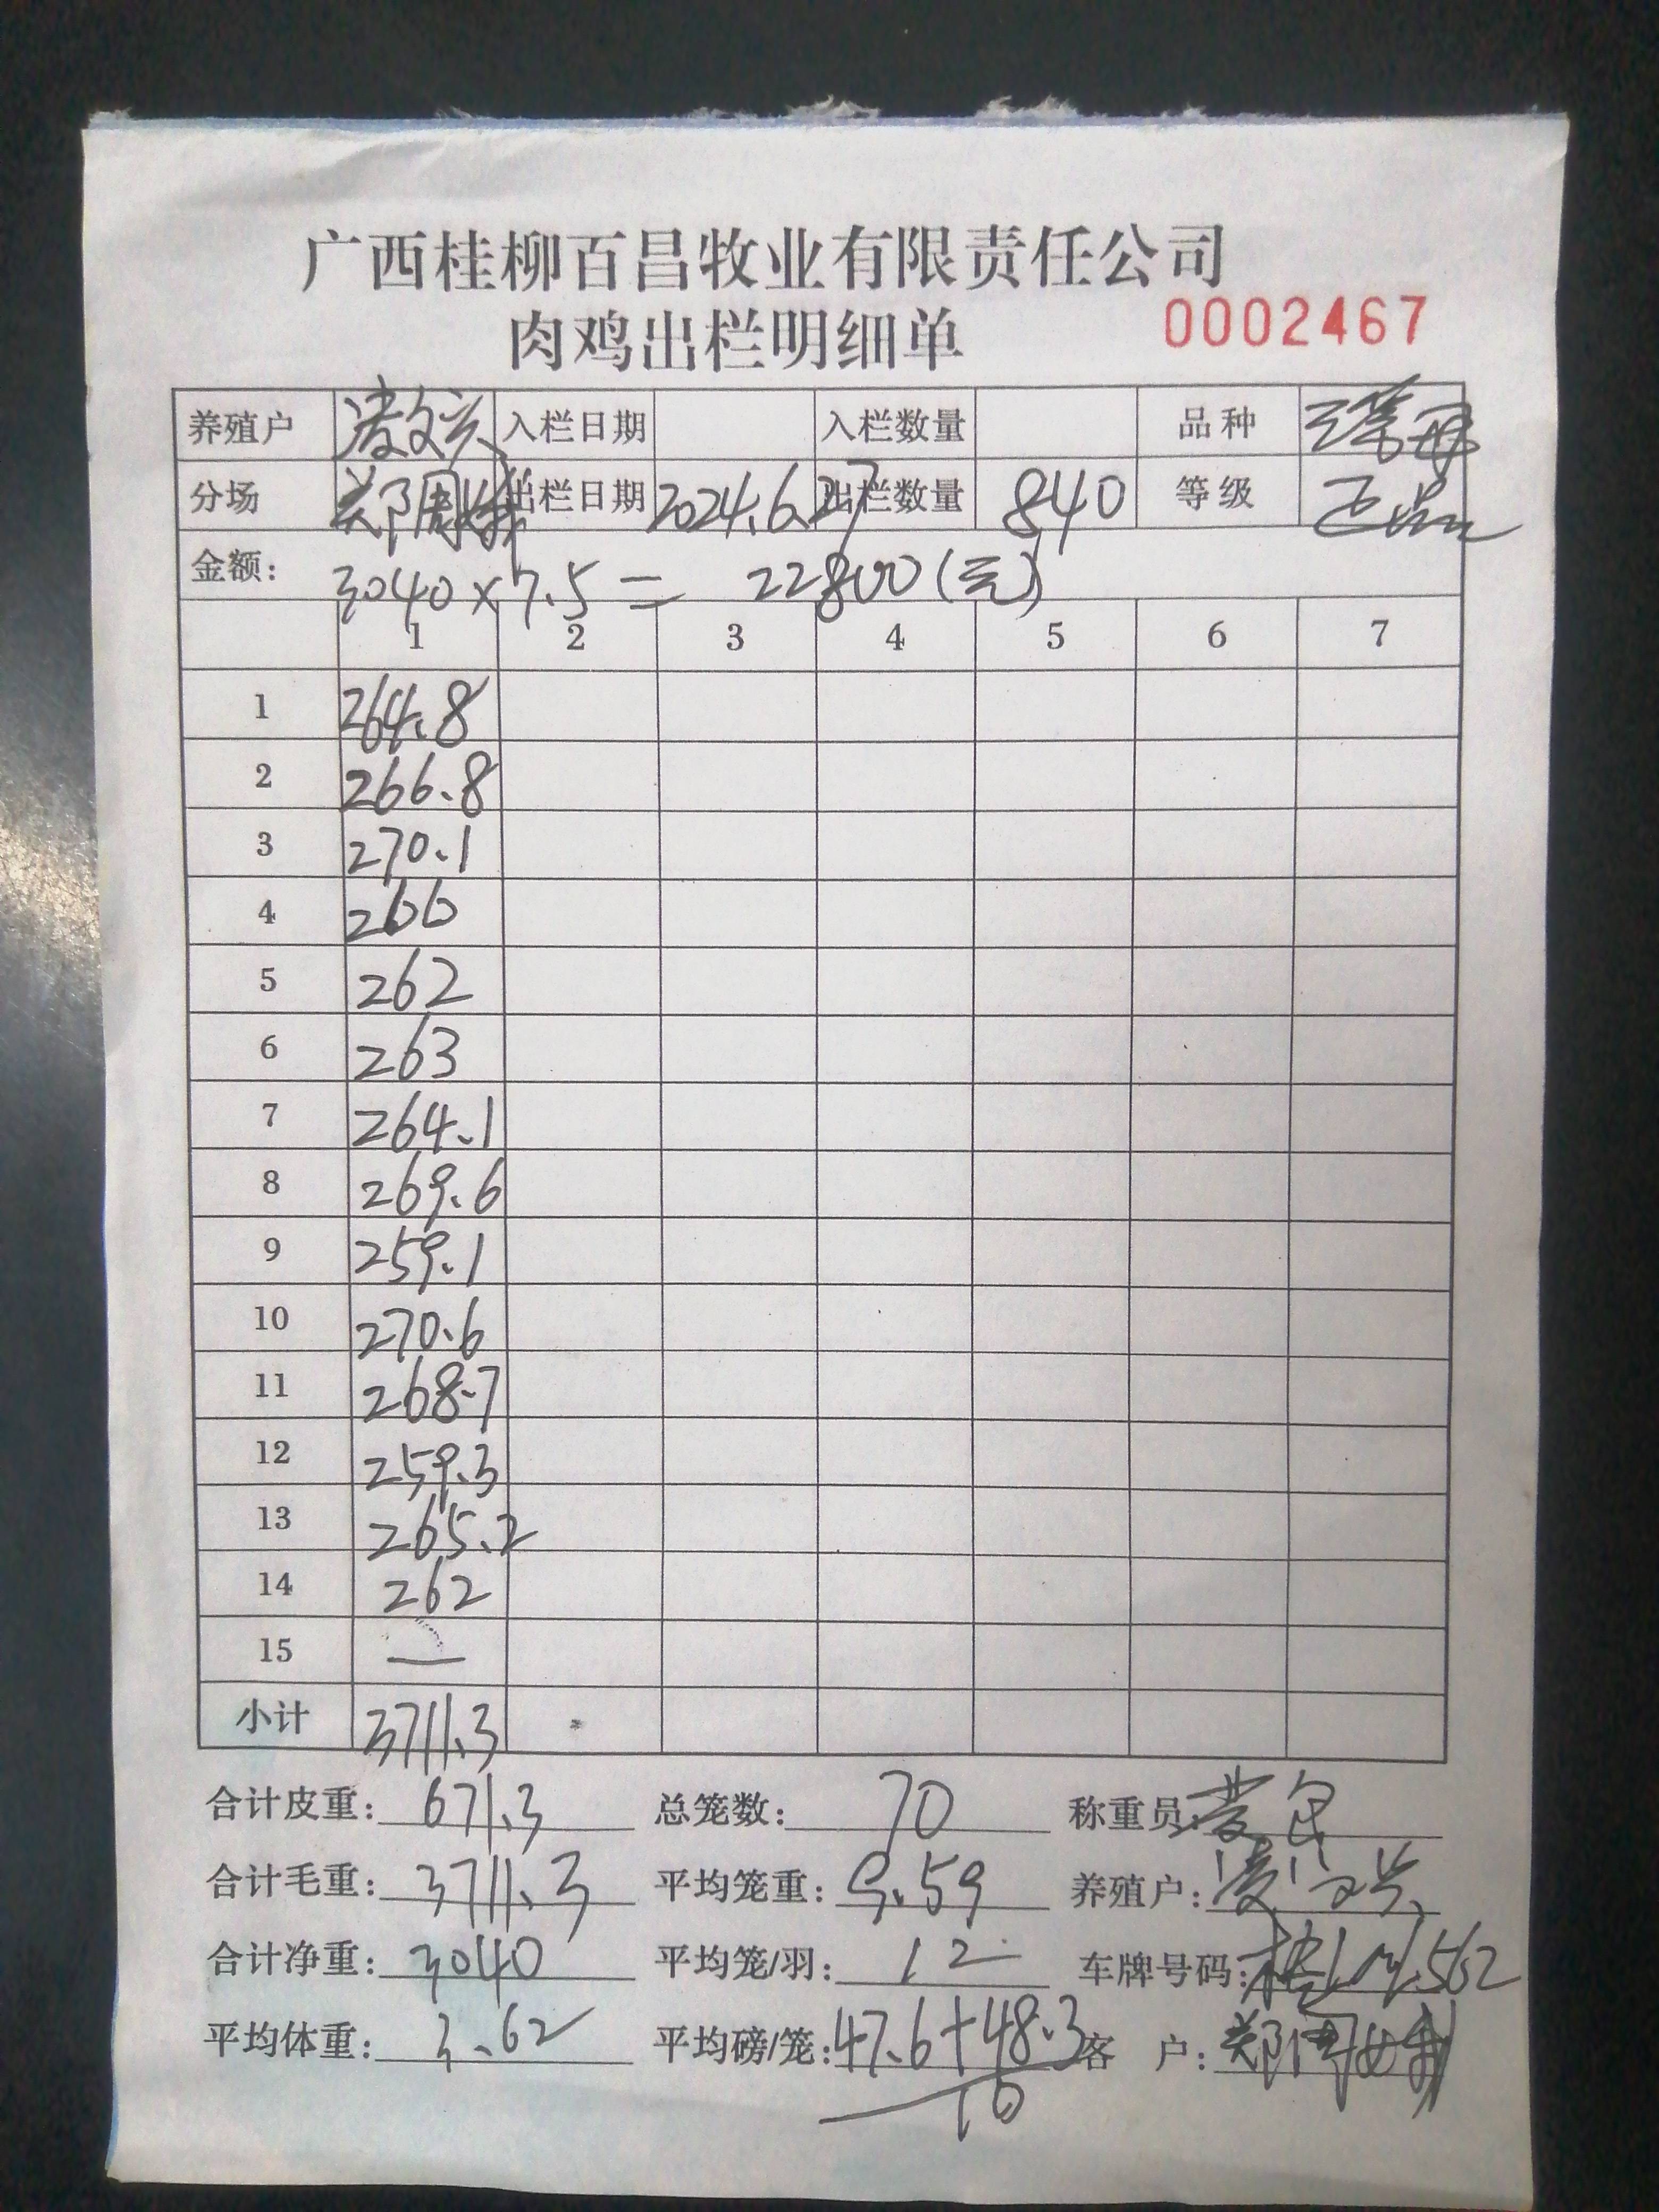 广西桂柳百昌牧业有限责任公司
肉鸡出栏明细单 0002467
养殖户 凌文兴 入栏日期 入栏数量 品种
分场 郑周 出栏日期 2024.6.27 出栏数量 840 等级 正品
金额: 3040×7.5= 22800(元)
1 2 3 4 5 6 7
1 264.8
2 266.8
3 270.1
4 266
5 262
6 263
7 264.1
8 269.6
9 259.1
10 270.6
11 268.7
12 259.3
13 265.2
14 262
15 —
小计 3711.3
合计皮重: 671.3 总笼数: 70 称重员:
合计毛重: 3711.3 平均笼重: 9.59 养殖户: 凌文兴
合计净重: 3040 平均笼/羽: 12 车牌号码: 562
平均体重: 3.62 平均磅/笼: 47.6+48.3 客 户: 郑周
10